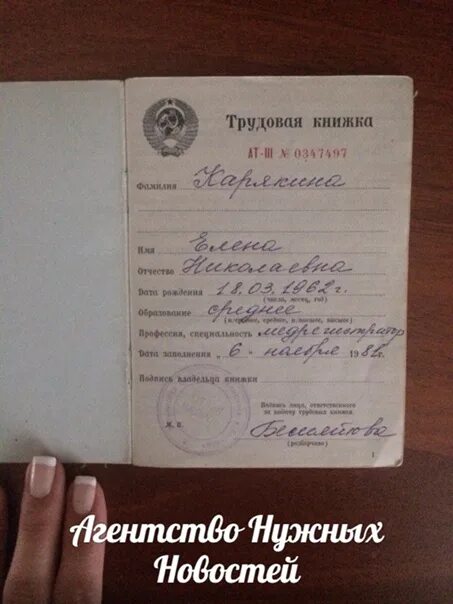 Трудовая книжка
АТ-III № 0347497
Фамилия Карякина
Имя Елена
Отчество Николаевна
Дата рождения 18.03.1962 г.
(число, месяц, год)
Образование среднее
(начальное, среднее, н/высшее, высшее)
Профессия, специальность медрегистратор
Дата заполнения „ 6 „ ноября 1982 г.
Подпись владельца книжки
Подпись лица, ответственного
за выдачу трудовых книжек
М. П.
(разборчиво)
1
Агентство Нужных
Новостей